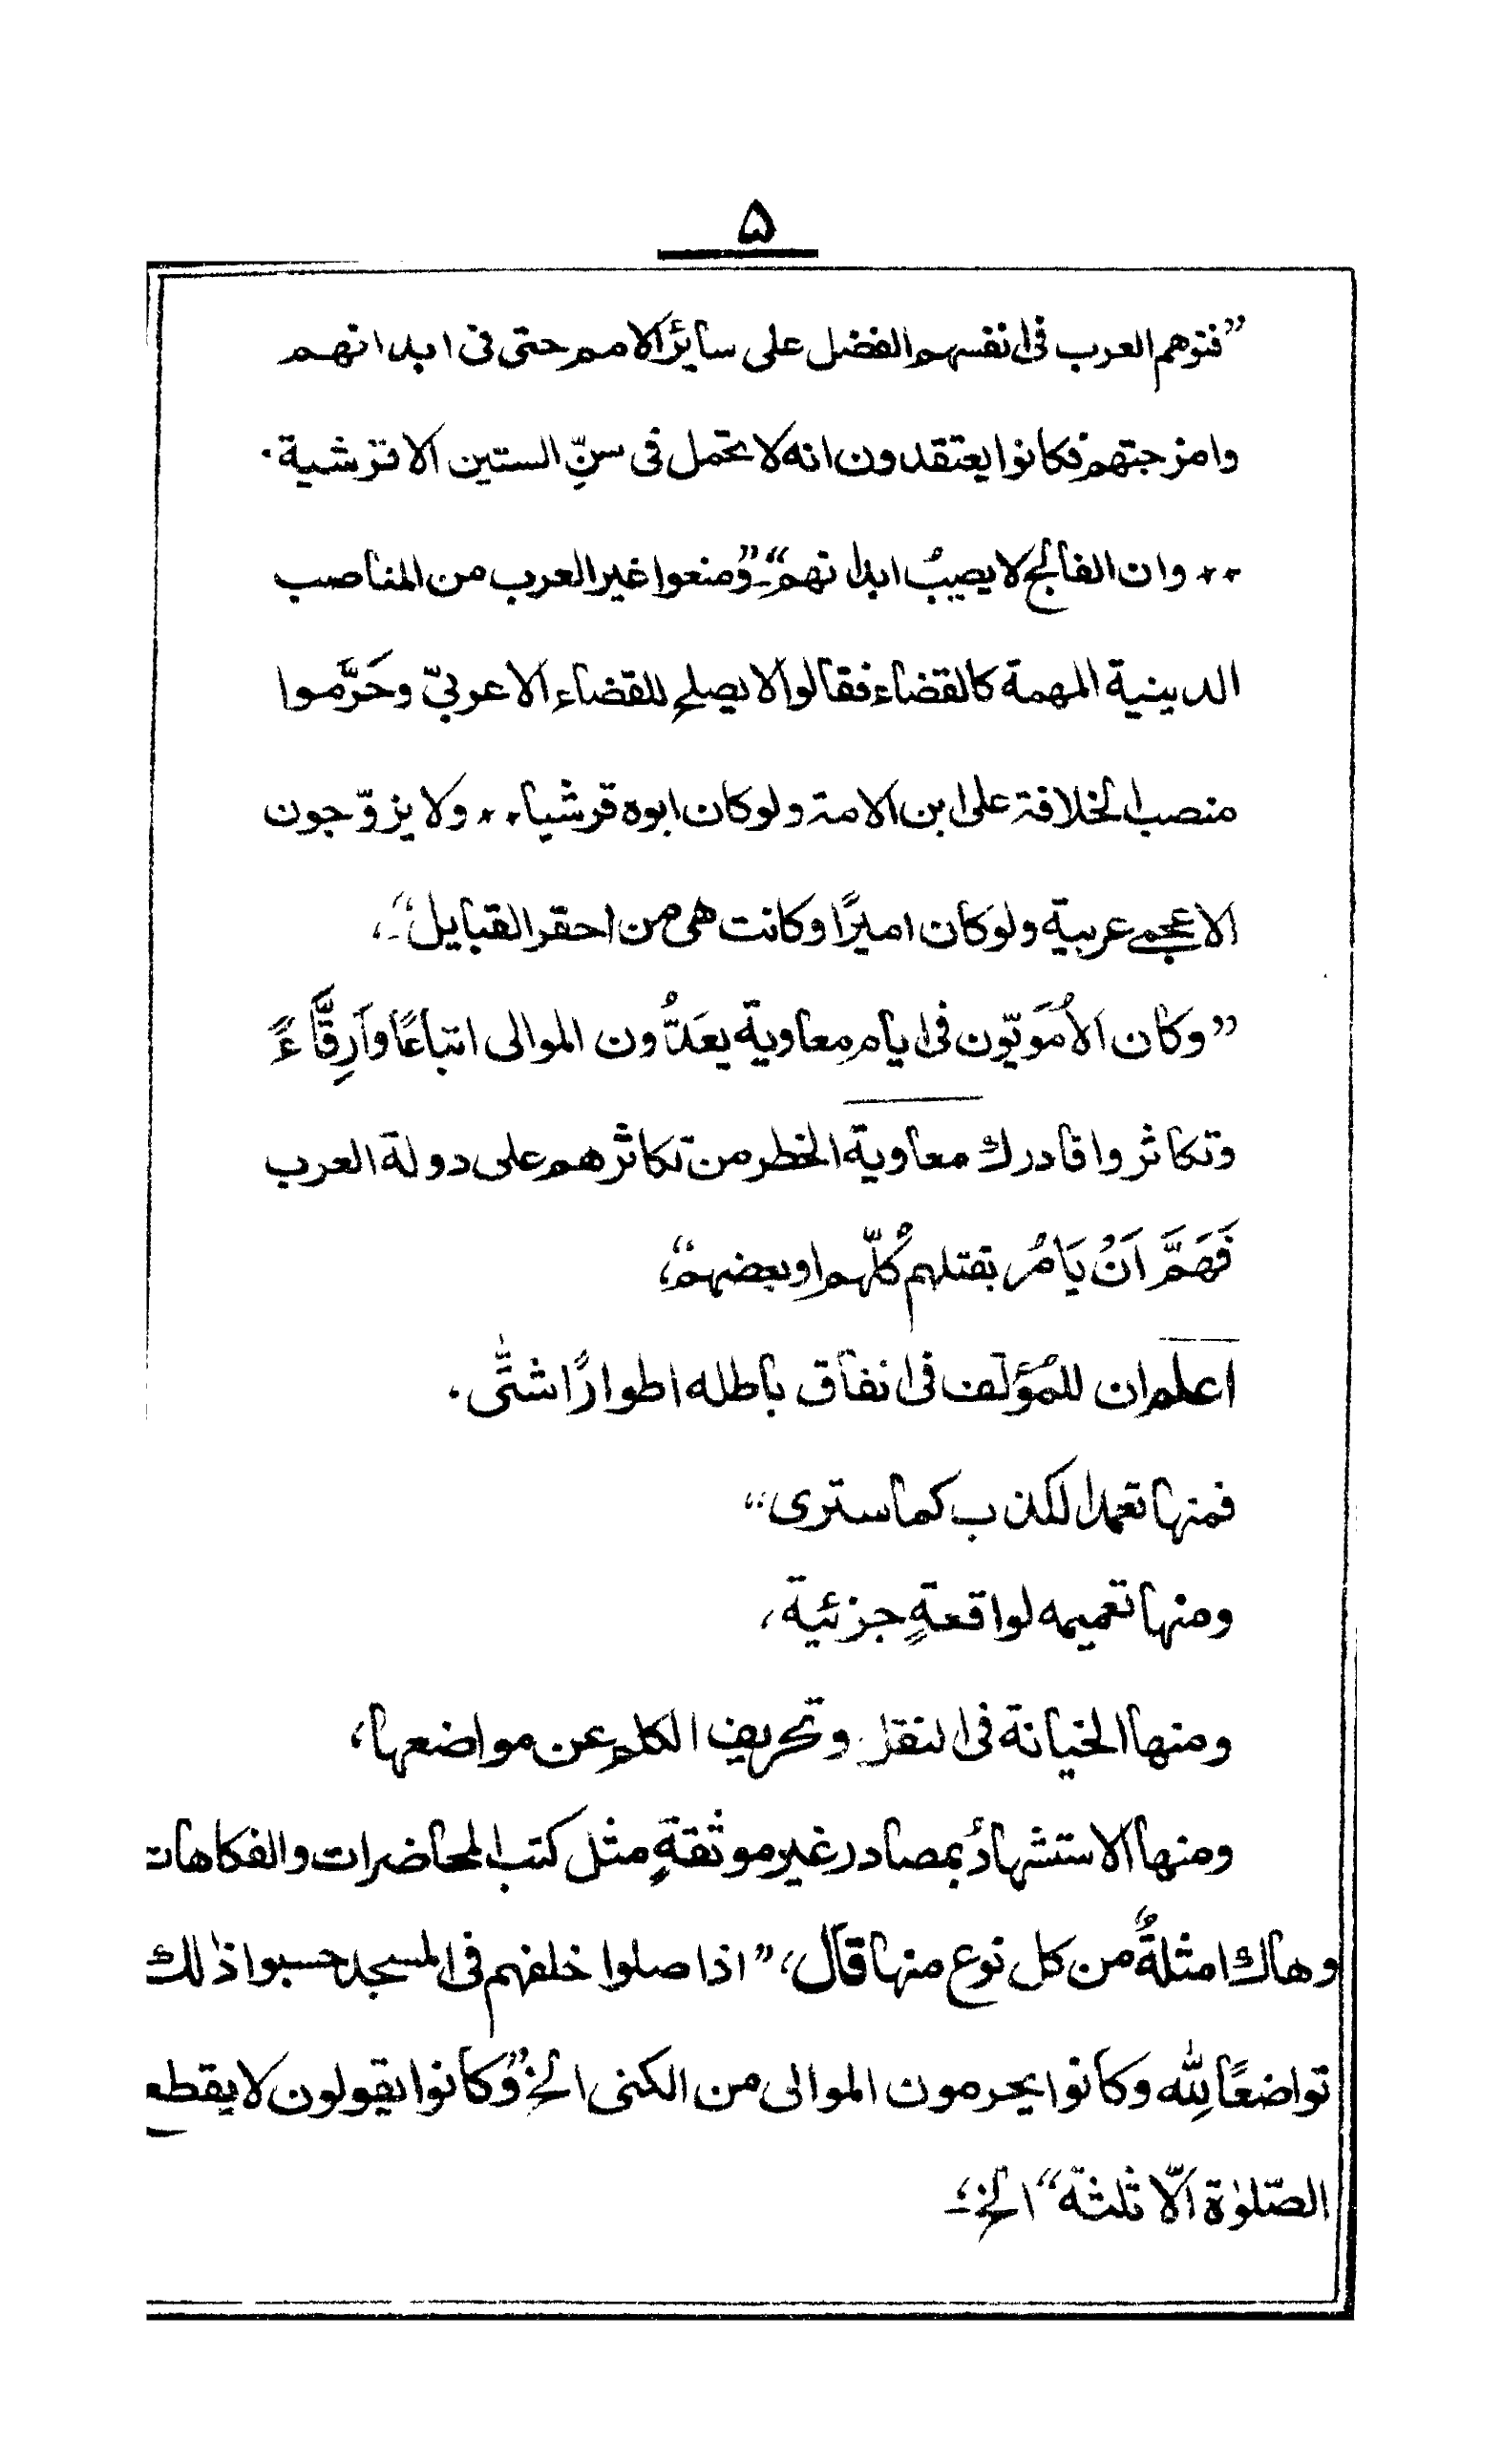 ۵
”فتوهم العرب فى انفسهم الفضل على سائر الامم حتى فى ابدانهم
وامزجتهم فكانوا يعتقدون انه لا تحمل فى سنّ الستين الا قرشية۰
٭٭ وان الفالج لا يصيبُ ابدانهم“۔ ”ومنعوا غير العرب من المناصب
الدينية المهمة كالقضاء فقالوا لا يصلح للقضاء الا عربىّ وحَرَّموا
منصب الخلافة على ابن الامة ولو كان ابوه قرشيا ٭٭ ولا يزوّجون
الاعجمى عربية ولو كان اميرًا وكانت هى من احقر القبايل“۔،
”وكان الاُمَويّون فى ايام معاوية يعَدُّون الموالى اتباعًا وَاَرِقَّاءً
وتكاثروا فادرك معاوية الخطر من تكاثرهم على دولة العرب
فَهَمَّ اَنْ يَامُر بقتلهم كُلّهم او بعضهم“،
اعلم ان للمُؤَلّف فى انفاق باطله اطوارًا شتّٰى۰
فمنها تعمد الكذب كما سترى،،
ومنها تعميمه لواقعةٍ جزئية،
ومنها الخيانة فى النقل وتحريف الكلم عن مواضعها،
ومنها الاستشهادُ بمصادر غير موثقةٍ مثل كتب المحاضرات والفكاهات
وهاك امثلةً من كل نوع منها قال، ”اذا صلوا خلفهم فى المسجد حسبوا ذٰلك
تواضعًا لِلّٰه وكانوا يحرمون الموالى من الكنى الخ“ ”وكانوا يقولون لا يقطع
الصّلوٰة الّا ثلثة“ الخ؛۔